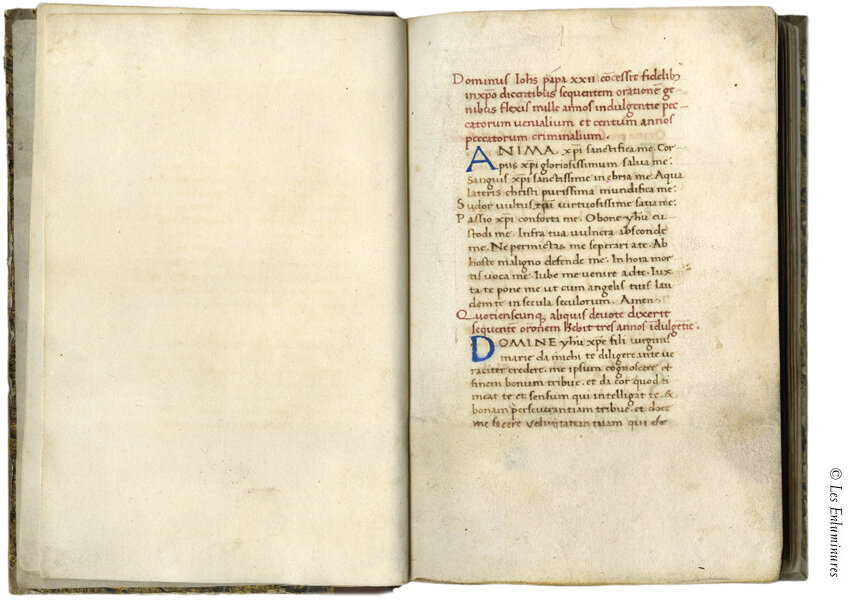 Dominus Iohs papa xxii cōcessit fidelib3
in xpo dicentibus sequentem orationē ge-
nibus flexis mille annos indulgentie pec-
catorum uenialium et centum annos
peccatorum criminalium.
ANIMA xpi sanctifica me. Cor-
pus xpi gloriosissimum salua me:
Sanguis xpi sanctissime inebria me. Aqua
lateris christi purissima mundifica me:
Sudor uultus xpi uirtuosissime satia me:
Passio xpi conforta me. O bone yhu cu-
stodi me. Infra tua uulnera absconde
me. Ne permictas me seperari a te. Ab
hoste maligno defende me. In hora mor
tis uoca me. Iube me uenire ad te. Iux
ta te pone me ut cum angelis tuis lau
dem te in secula seculorum. Amen.
Quotienscunq; aliquis deuote dixerit
sequentē orōnem hēbit tres annos īdulgētie.
DOMINE yhu xpe fili uirginis
marie da michi te diligere ante ue
raciter credere. me ipsum cognoscere et
finem bonum tribue. et da cor quod ti
meat te et sensum qui intelligat te. &
bonam perseuerantiam tribue. et doce
me facere uoluntatem tuam qui es
© Les Enluminures